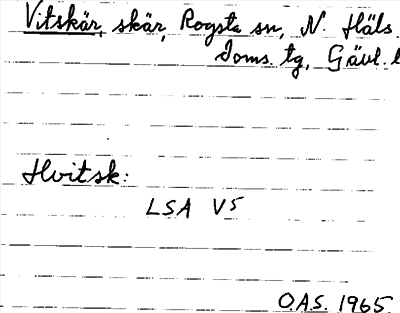 Vitskär, skär, Rogsta sn, N. Häls.
Doms. tg, Gävl. l
Hvitsk:
LSA V5
O.A.S. 1965